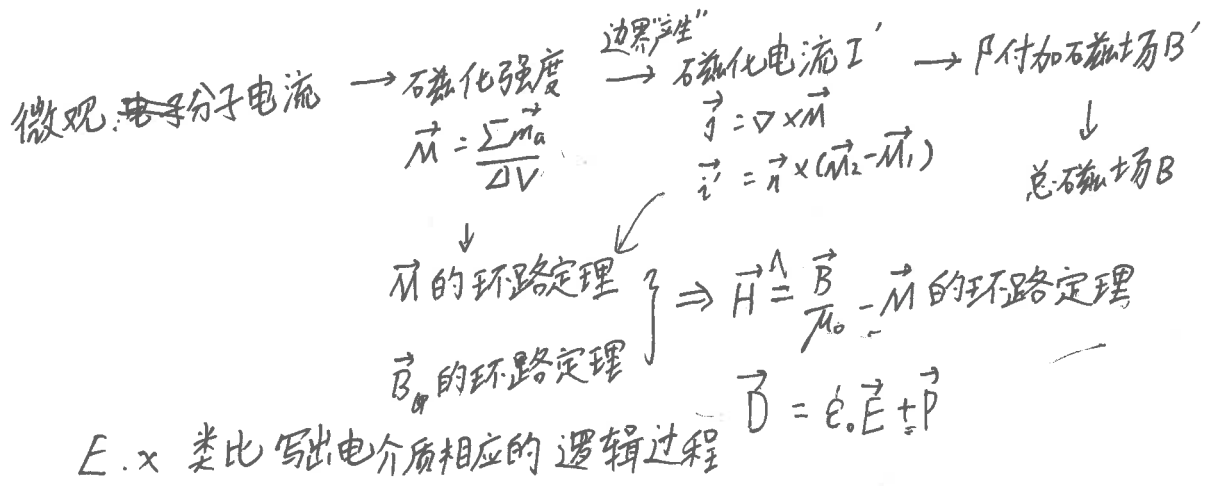 边界"产生"
微观：分子电流 → 磁化强度 → 磁化电流I' → 附加磁场B'
M⃗ = Σm⃗a / ΔV
j⃗' = ∇×M⃗
↓
i⃗' = n⃗×(M⃗2-M⃗1)
总磁场B
↓
M⃗的环路定理
B⃗的环路定理
} ⇒ H⃗ ≜ B⃗/μ0 - M⃗的环路定理
D⃗ = ε0E⃗ + P⃗
E.x 类比写出电介质相应的逻辑过程